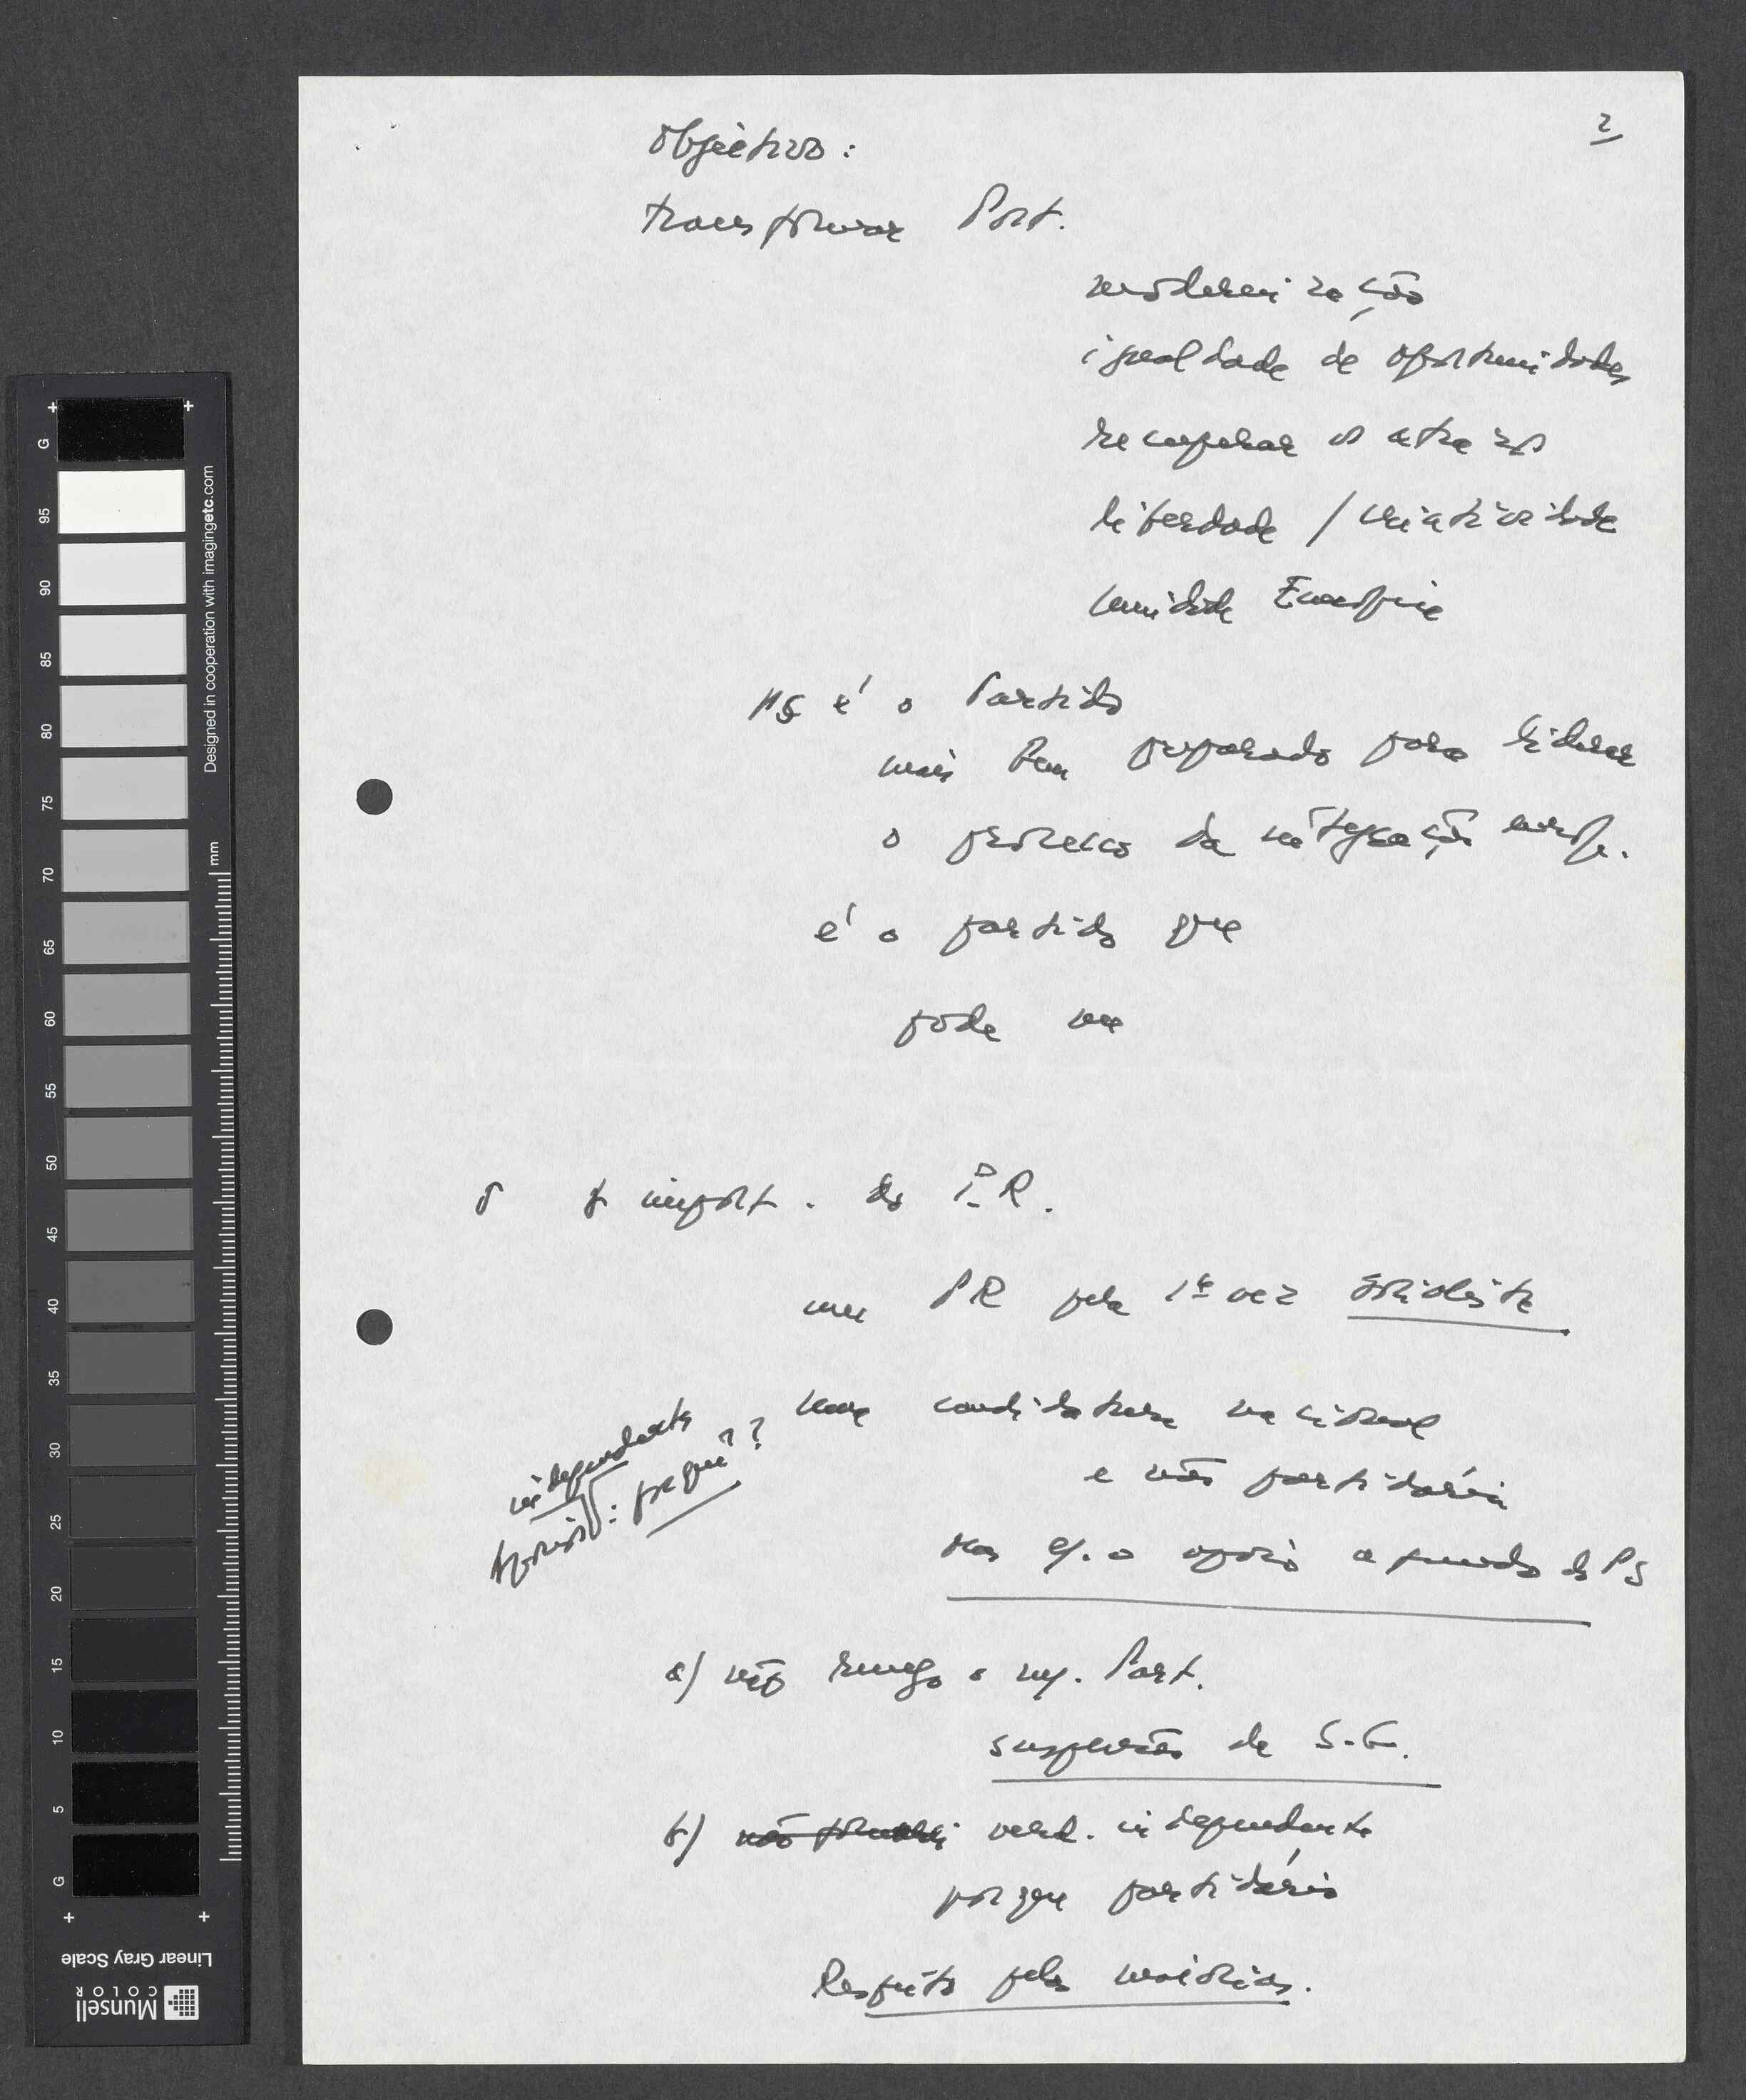 2
Objectivo:
transformar Port.
modernização
igualdade de oportunidades
recuperar os atrasos
liberdade / criatividade
unidade Europeia
PS é o Partido
mais bem preparado para liderar
o processo da integração europ.
é o partido que
pode
import. do P.R.
um PR pela 1ª vez
uma candidatura nacional
e não partidária
mas c/. o apoio a fundo do PS
independente
: porquê??
a) não renego o meu Part.
suspensão de S.G.
b) não verd. independente
porque partidário
Respeito pelas maiorias.
G
95
90
85
80
75
70
65
60
55
50
45
40
35
30
25
20
15
10
5
G
mm
Designed in cooperation with imagingetc.com
Linear Gray Scale
Munsell
COLOR